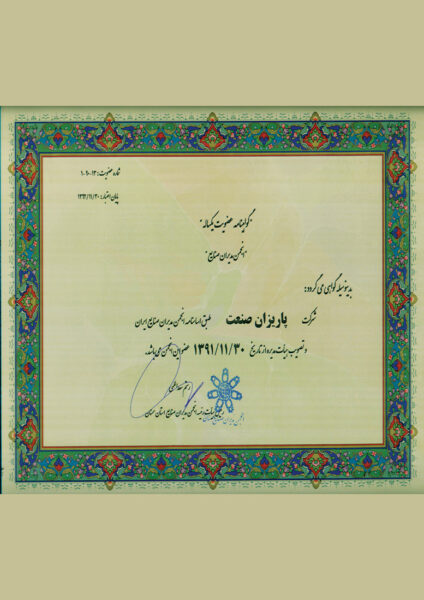 شماره عضویت: ۱۰۶۰۱۳
پایان اعتبار: ۱۳۹۲/۱۱/۳۰
"گواهینامه عضویت یکساله"
"انجمن مدیران صنایع"
بدینوسیله گواهی می گردد:
شرکت پاریزان صنعت طبق اساسنامه انجمن مدیران صنایع ایران
و تصویب هیات مدیره از تاریخ ۱۳۹۱/۱۱/۳۰ عضو این انجمن می باشد.
انجمن مدیران صنایع استان سمنان
انجمن مدیران صنایع